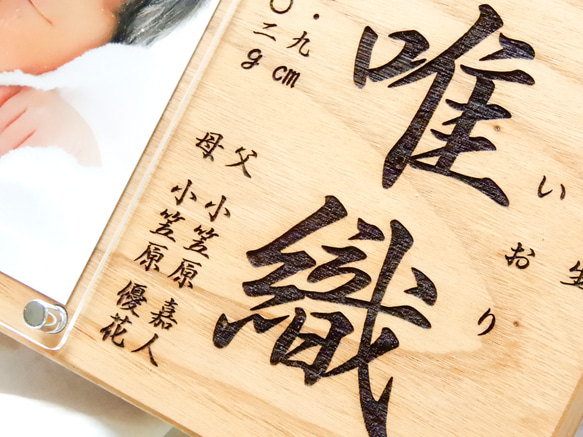 生
いおり
唯織
・九cm
〇二g
父 小笠原 嘉人
母 小笠原 優花